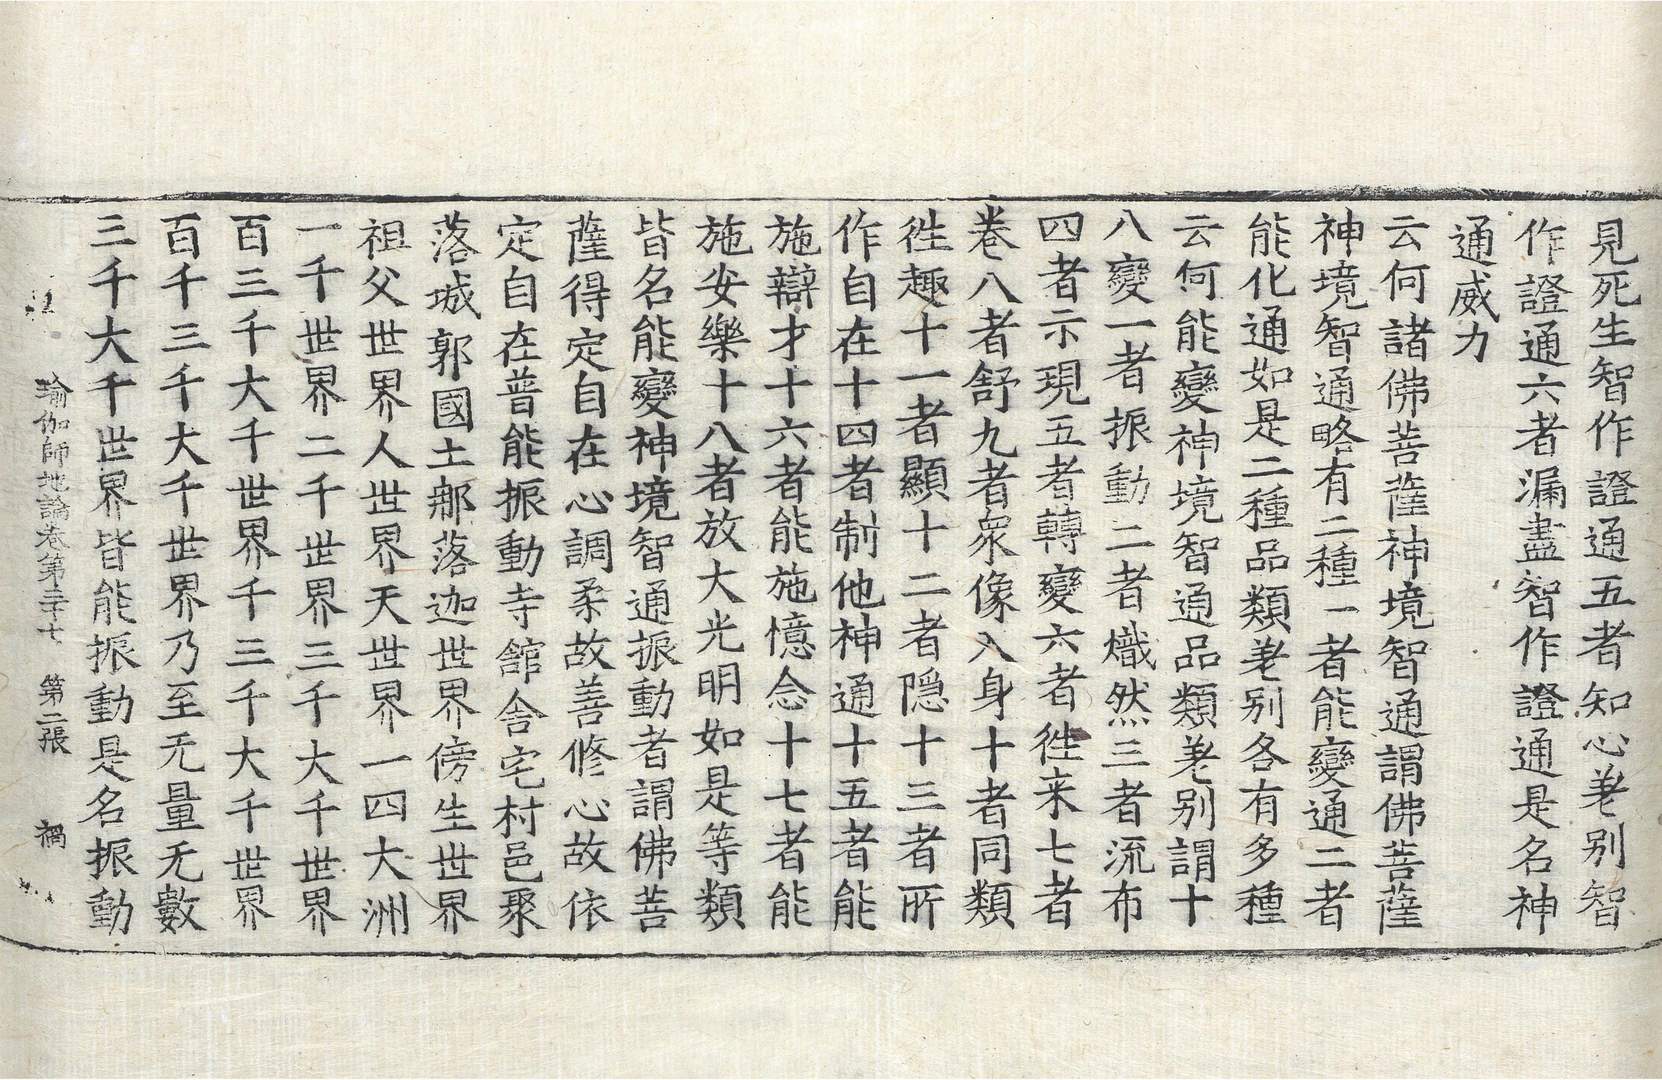 見死生智作證通五者知心差别智
作證通六者漏盡智作證通是名神
通威力
云何諸佛菩薩神境智通謂佛菩薩
神境智通略有二種一者能變通二者
能化通如是二種品類差别各有多種
云何能變神境智通品類差别謂十
八變一者振動二者熾然三者流布
四者示現五者轉變六者徃来七者
卷八者舒九者衆像入身十者同類
徃趣十一者顯十二者隐十三者所
作自在十四者制他神通十五者能
施辯才十六者能施憶念十七者能
施安樂十八者放大光明如是等類
皆名能變神境智通振動者謂佛菩
薩得定自在心調柔故善修心故依
定自在普能振動寺舘舍宅村邑聚
落城郭國土郍落迦世界傍生世界
祖父世界人世界天世界一四大洲
一千世界二千世界三千大千世界
百三千大千世界千三千大千世界
百千三千大千世界乃至无量无數
三千大千世界皆能振動是名振動
瑜伽師地論卷第三十七 第二張 禍